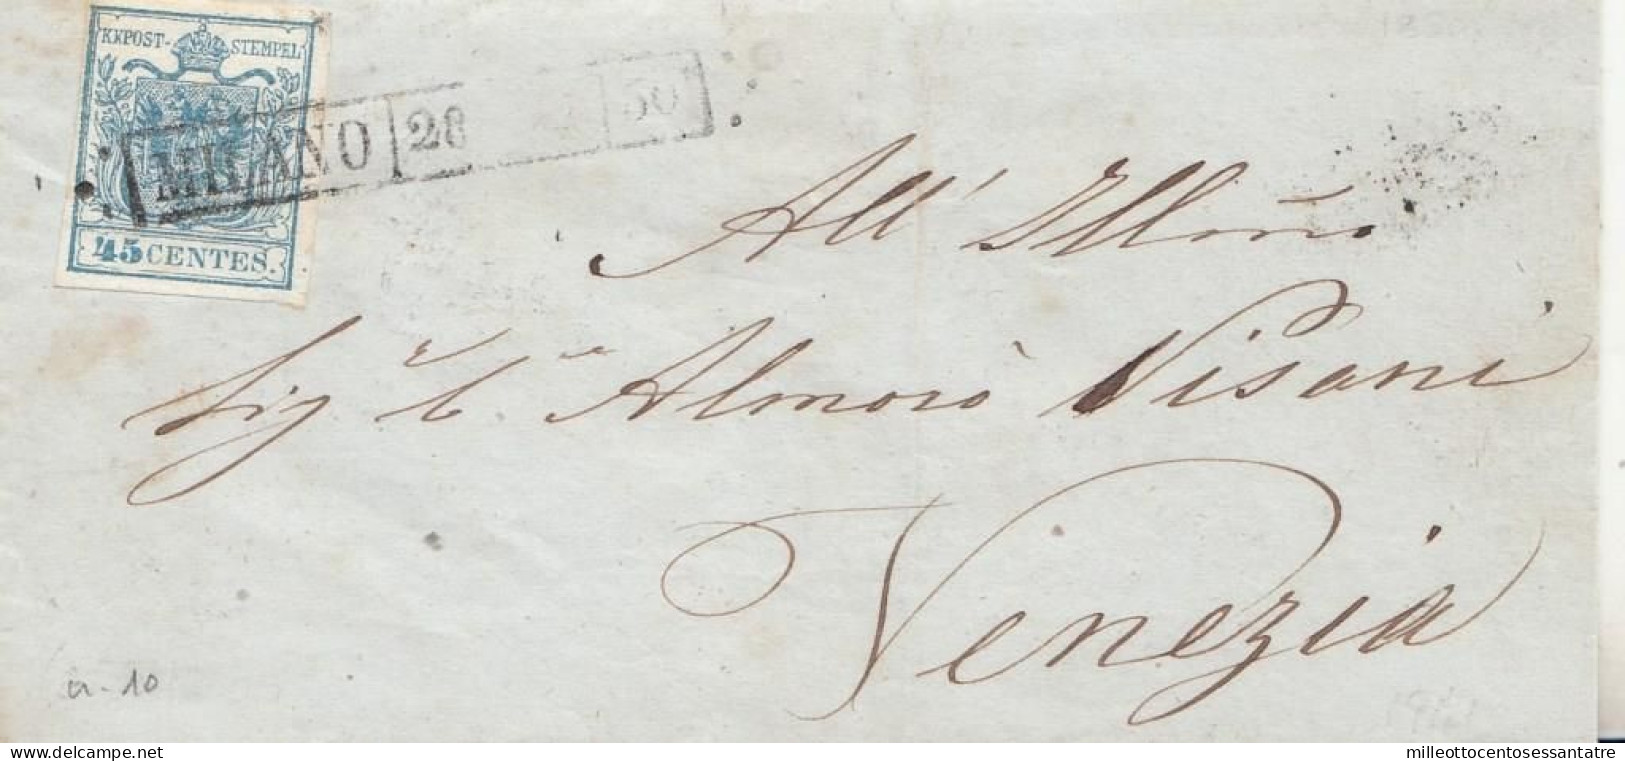 KKPOST-STEMPEL
MILANO 28 50
45 CENTES.
All' Illmo
Sig
Almorò Pisani
Venezia
a. 10
www.delcampe.net
milleottocentosessantatre